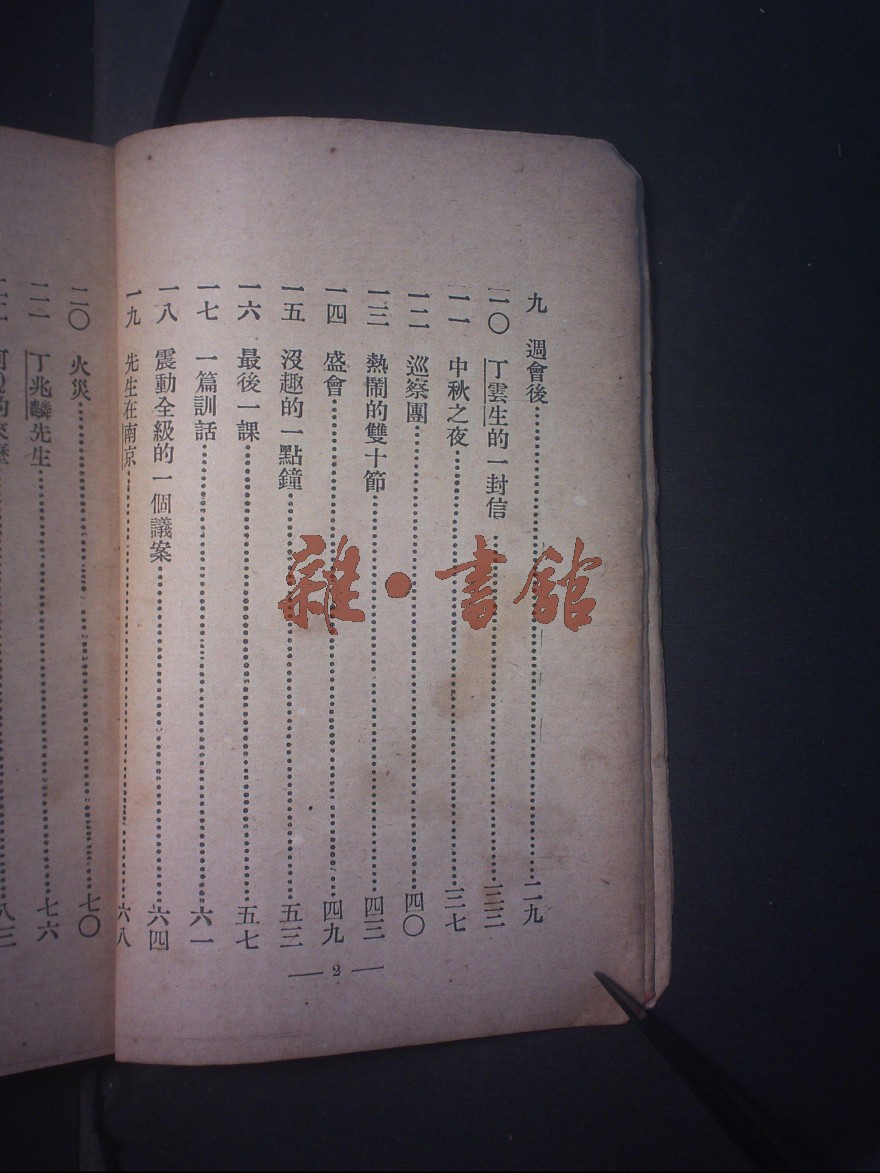 九 週會後……二九
一〇 丁雲生的一封信……三三
一一 中秋之夜……三七
一二 巡察團……四〇
一三 熱鬧的雙十節……四三
一四 盛會……四九
一五 沒趣的一點鐘……五三
一六 最後一課……五七
一七 一篇訓話……六一
一八 震動全級的一個議案……六四
一九 先生在南京……六八
二〇 火災……七〇
二一 丁兆麟先生……七六
八三
— 2 —
雜·書館